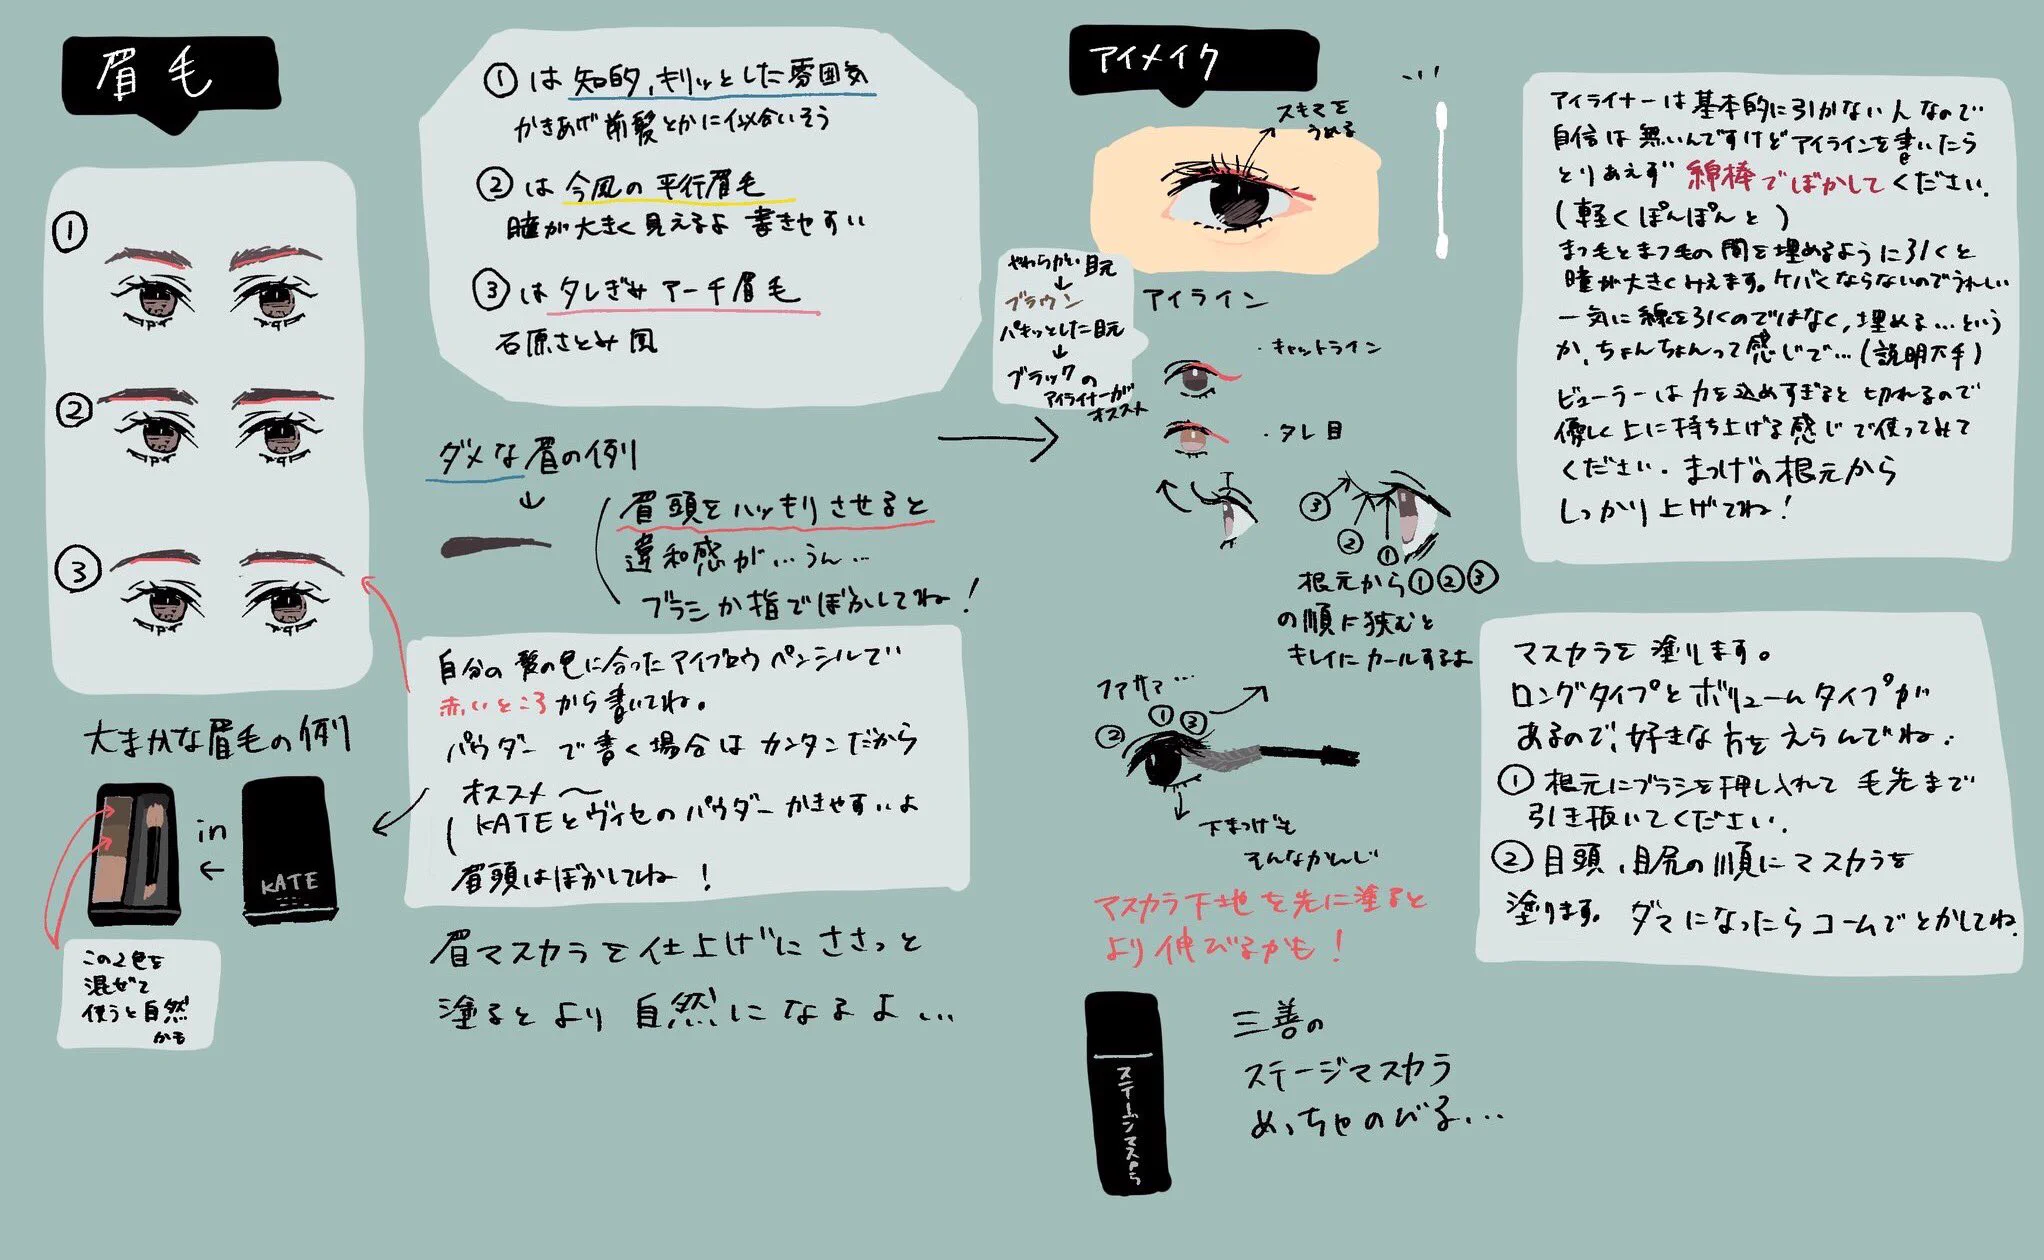 眉毛
①
②
③
大まかな眉毛の例
①は知的,キリッとした雰囲気
かきあげ前髪とかに似合いそう
②は今風の平行眉毛
瞳が大きく見えるよ 書きやすい
③はタレぎみアーチ眉毛
石原さとみ風
ダメな眉の例
↓
眉頭をハッキリさせると
違和感が…うん…
ブラシか指でぼかしてね!
自分の髪の色に合ったアイブロウペンシルで
赤いところから書いてね。
パウダーで書く場合はカンタンだから
オススメ〜
KATEとヴィセのパウダーかきやすいよ
眉頭はぼかしてね!
in
←
KATE
この2色を
混ぜて
使うと自然
かも
眉マスカラを仕上げにささっと
塗るとより自然になるよ…
アイメイク
スキマを
うめる
やわらかい目元
↓
ブラウン
パキッとした目元
↓
ブラックの
アイライナーが
オススメ
アイライン
・キャットライン
・タレ目
③
②
①
根元から①②③
の順に挟むと
キレイにカールするよ
ファサァ…
②
①
③
下まつげも
そんなかんじ
マスカラ下地を先に塗ると
より伸びるかも!
ステージマスカラ
三善の
ステージマスカラ
めっちゃのびる…
アイライナーは基本的に引かない人なので
自信は無いんですけどアイラインを書いたら
とりあえず綿棒でぼかしてください.
(軽くぽんぽんと)
まつ毛とまつ毛の間を埋めるように引くと
瞳が大きくみえます。ケバくならないのでうれしい
一気に線を引くのではなく,埋める…という
か,ちょんちょんって感じで…(説明下手)
ビューラーは力を込めすぎると切れるので
優しく上に持ち上げる感じで使ってみて
ください.まつげの根元から
しっかり上げてね!
マスカラを塗ります。
ロングタイプとボリュームタイプが
あるので,好きな方をえらんでね.
①根元にブラシを押し入れて毛先まで
引き抜いてください.
②目頭,目尻の順にマスカラを
塗ります。ダマになったらコームでとかしてね.